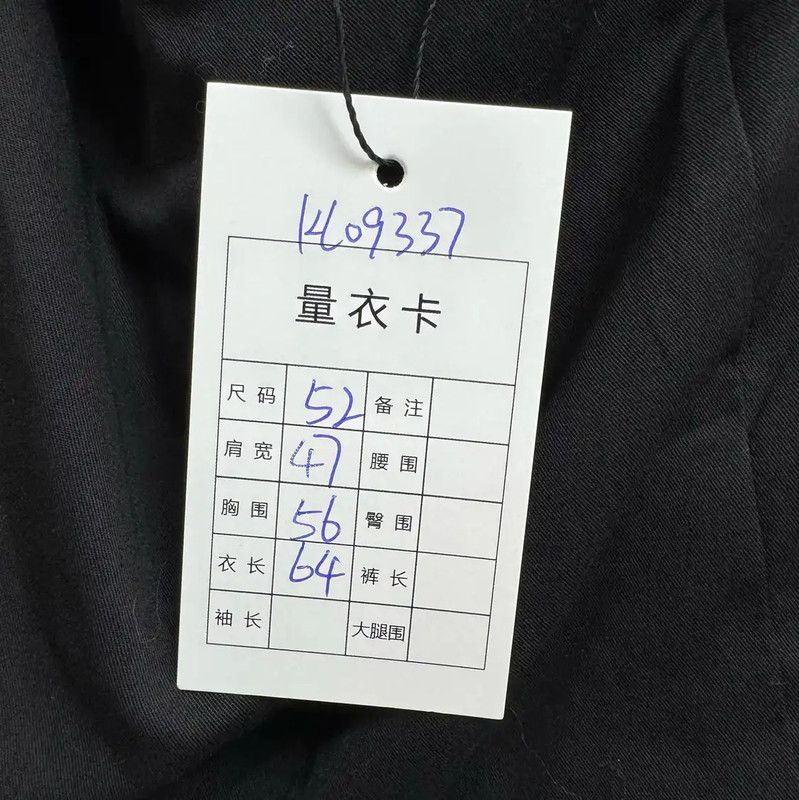 K09337
量衣卡
尺码 52 备注
肩宽 47 腰围
胸围 56 臀围
衣长 64 裤长
袖长 大腿围